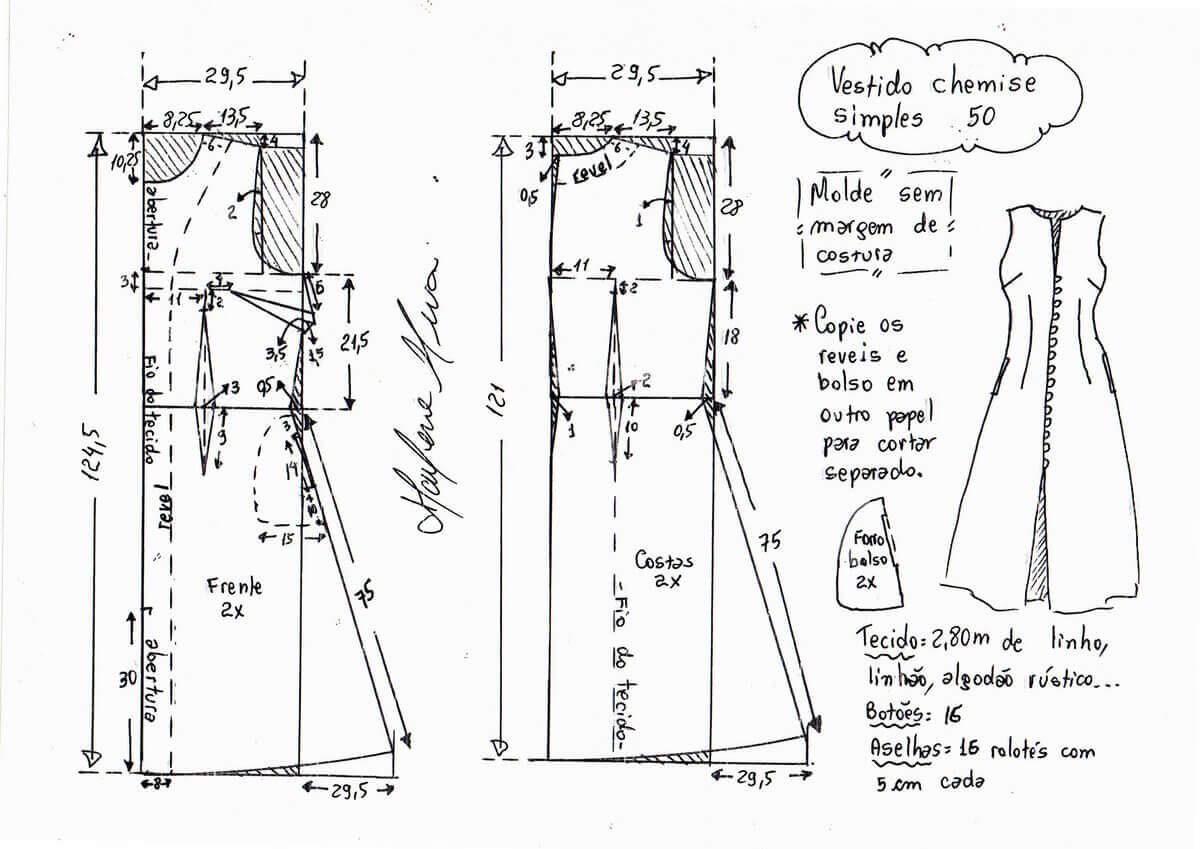 29,5
8,25
13,5
10,25
6
4
28
2
abertura
3
11
3
2
6
3,5
1,5
21,5
3
0,5
Fio do tecido
9
3
14
15
124,5
revel
Frente
2x
75
30
abertura
8
29,5
29,5
8,25
13,5
3
6
4
revel
0,5
1
28
11
2
18
121
2
1
10
0,5
75
Costas
2x
Fio do tecido
29,5
Vestido chemise
simples 50
Molde sem
margem de
costura
* Copie os
reveis e
bolso em
outro papel
para cortar
separado.
Forro
bolso
2x
Tecido: 2,80m de linho,
linhão, algodão rústico...
Botões: 16
Aselhas: 16 rolotés com
5 cm cada